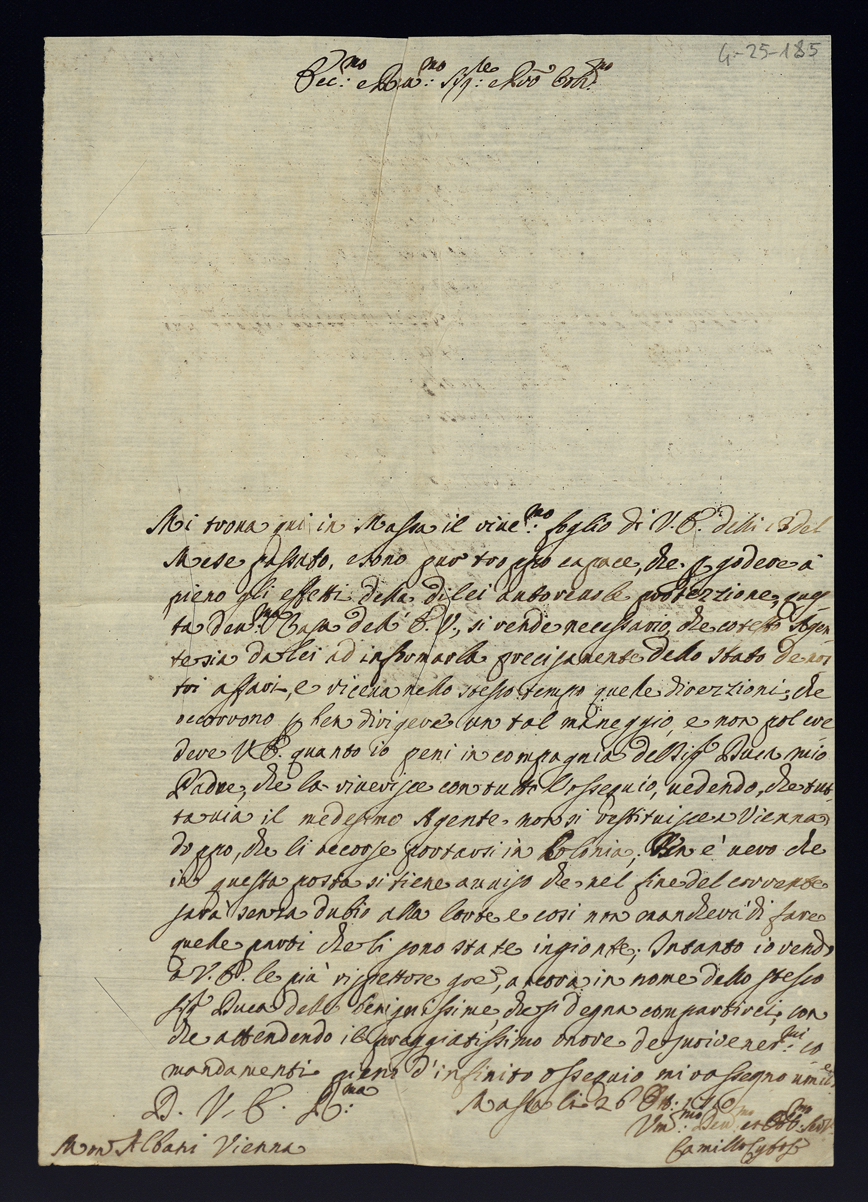 4-25-185
Ecc.mo e Rev.mo Sig.re e Pron Colmo
Mi trova qui in Massa il rive.mo foglio di V.E. delli 18 del
Mese passato, e sono pur troppo capace, che p godere à
pieno gli effetti della di lei autorevole protezzione, ques
ta dev.ma Casa dell' E.V., si rende necessario, che cotesto Agen
te sia da lei ad informarla precisamente dello stato de nos
tri affari, e riceva nello stesso tempo quelle direzzioni, che
occorrono p ben dirigere un tal maneggio, e non puol cre
dere V.E. quanto io peni in compagnia del Sig.r Duca mio
Padre, che la riverisce con tutto l'ossequio, vedendo, che tut
tavia il medesimo Agente non si restituisce a Vienna
doppo, che li accorse portarsi in Polonia. Ben è vero che
in questa posta si tiene avviso che nel fine del corrente
sarà senza dubio alla Corte e così non mancherà di fare
quelle parti che li sono state ingionte; Intanto io rendo
à V.E. le più rispettose gre, ancora in nome dello stesso
Sig.r Duca delle benignissime, che si degna compartirci, con
che attendendo il preggiatissimo onore de suoi vener.mi co
mandamenti pieno d'infinito ossequio mi rassegno umil.e
D. V. E. R.ma Massa li 26
Vm.mo Dev.mo et Obb.mo
Camillo Cybo
Mon Albani Vienna